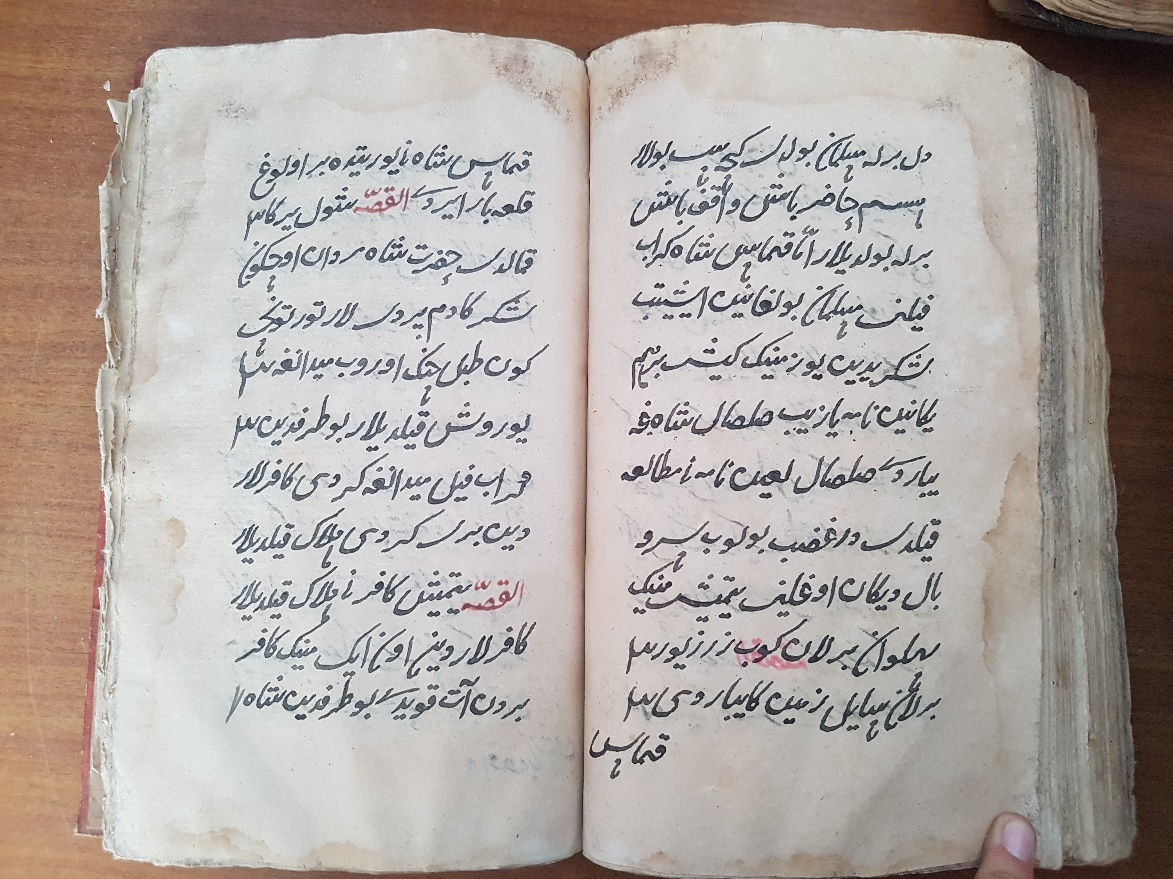 دل برله مسلمان بولدی کیچه سب بولار
حاضر باش واقف باش
برله بولدیلار اما قماس شاه کراب
فیلنی مسلمان بولغانین ایشیتیب
لشکریدین یوز مینک کیشی بریم
یکانین نامه یازیب صلصال شاه غه
یباردی صلصال لعین نامه نی مطالعه
قیلدی در غضب بولوب سرو
بال دیکان اوغلینی یتمیش مینک
پهلوان برلان کوب زر زیور
برلان زمین کا یباردی
قماس
قماس شاه نی یوریتیده بر اولوغ
قلعه بار ایردی القصه شول یرکا
قالدی حضرت شاه مردان اوچکون
لشکر کا دم بیردی لار تورتونچی
کون طبل جنک اوروب میدانغه
یوروش قیلدیلار بو طرفدین
قراب فیل میدانغه کردی کافرلار
دین بری کردی هلاک قیلدیلار
القصه یتمیش کافر نی هلاک قیلدیلار
کافرلار دین اون ایکی مینک کافر
بردن آت قویدی بو طرفدین شاه